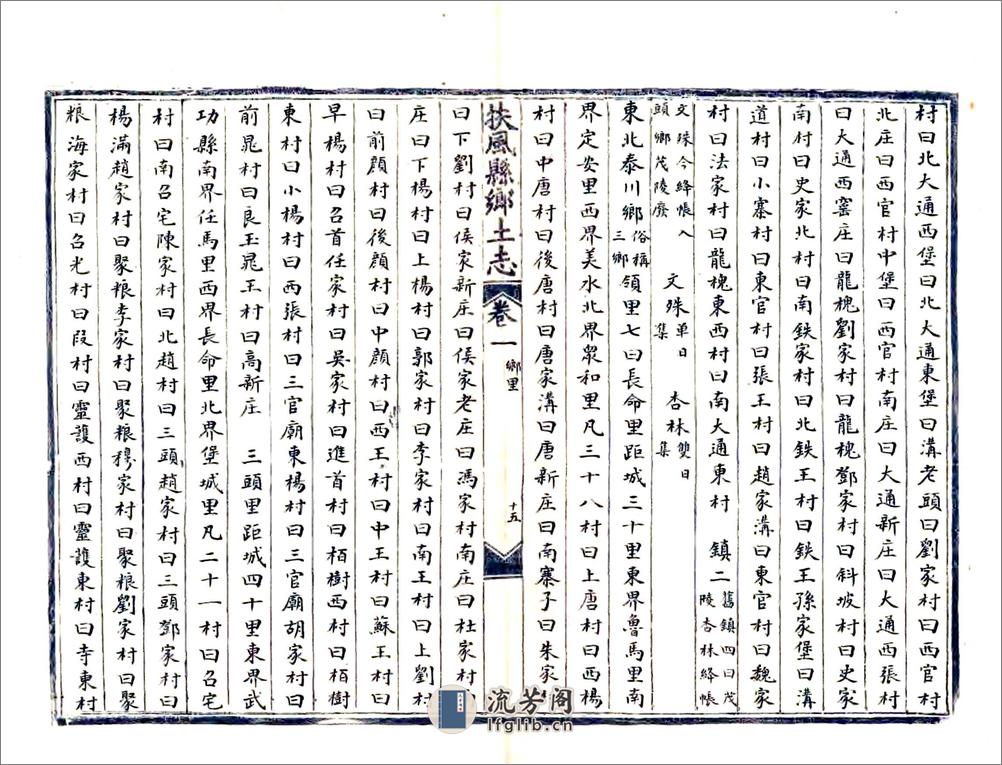 村曰北大通西堡曰北大通東堡曰溝老頭曰劉家村曰西官村
北庄曰西官村中堡曰西官村南庄曰大通新庄曰大通西張村
曰大通西窰庄曰龍槐劉家村曰龍槐鄧家村曰斜坡村曰史家
南村曰史家北村曰南鉄家村曰北鉄王村曰鉄王孫家堡曰溝
道村曰小寨村曰東官村曰張王村曰趙家溝曰東官村曰魏家
村曰法家村曰龍槐東西村曰南大通東村 鎮二 舊鎮四曰茂
陵杏林絳帳
文殊今絳帳入
頭鄉茂陵廢 文殊 單日
集 杏林 雙日
集
東北泰川鄉 俗稱
三鄉 領里七曰長命里距城三十里東界魯馬里南
界定安里西界美水北界眾和里凡三十八村曰上唐村曰西楊
村曰中唐村曰後唐村曰唐家溝曰唐新庄曰南寨子曰朱家
扶風縣鄉土志 卷一 鄉里 十五
曰下劉村曰侯家新庄曰侯家老庄曰馮家村南庄曰杜家里南
庄曰下楊村曰上楊村曰郭家村曰李家村曰南王村曰上劉村
曰前顏村曰後顏村曰中顏村曰西王村曰中王村曰蘇王村曰
早楊村曰召首任家村曰吳家村曰進首村曰栢樹西村曰栢樹
東村曰小楊村曰西張村曰三官廟東楊村曰三官廟胡家村曰
前晁村曰良玉晁王村曰高新庄 三頭里距城四十里東界武
功縣南界任馬里西界長命里北界堡城里凡二十一村曰召宅
村曰南召宅陳家村曰北趙村曰三頭趙家村曰三頭鄧家村曰
楊滿趙家村曰聚粮李家村曰聚粮穆家村曰聚粮劉家村曰聚
粮海家村曰召光村曰段村曰靈護西村曰靈護東村曰寺東村
流芳阁
lfglib.cn